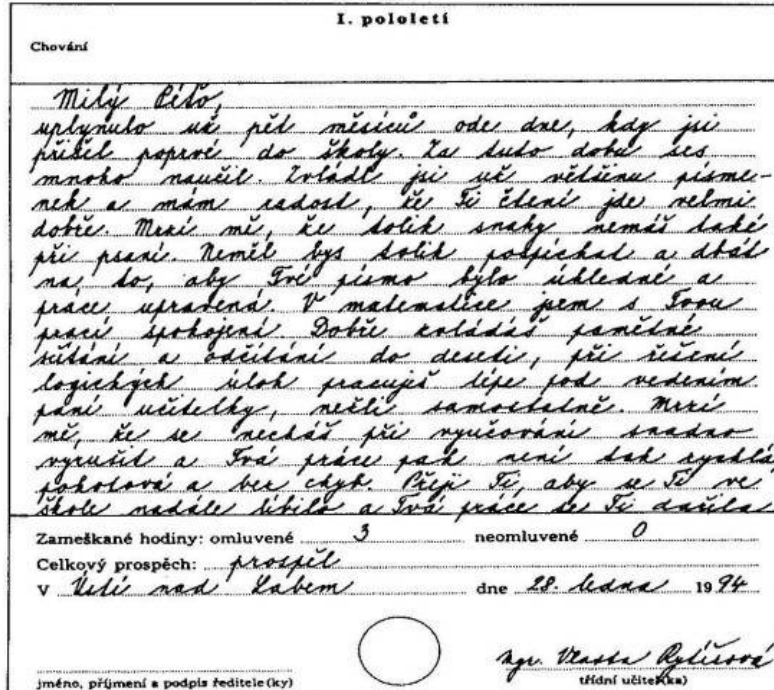 I. pololetí
Chování
Milý Péťo,
uplynulo už pět měsíců ode dne, kdy jsi
přišel poprvé do školy. Za tuto dobu ses
mnoho naučil. Zvládl jsi už většinu písme-
nek a mám radost, že Ti čtení jde velmi
dobře. Mrzí mě, že tolik snahy nemáš také
při psaní. Neměl bys tolik pospíchat a dbát
na to, aby Tvé písmo bylo úhledné a
práce upravená. V matematice jsem s Tvou
prací spokojená. Dobře zvládáš pamětné
sčítání a odčítání do deseti, při řešení
logických úloh pracuješ lépe pod vedením
paní učitelky, nežli samostatně. Mrzí
mě, že se necháš při vyučování snadno
vyrušit a Tvá práce pak není tak rychlá
pohotová a bez chyb. Přeji Ti, aby se Ti ve
škole nadále líbilo a Tvá práce se Ti dařila
Zameškané hodiny: omluvené 3 neomluvené 0
Celkový prospěch: prospěl
V Ústí nad Labem dne 28. ledna 1994
Mgr. Vlasta
jméno, příjmení a podpis ředitele(ky) třídní učitel(ka)